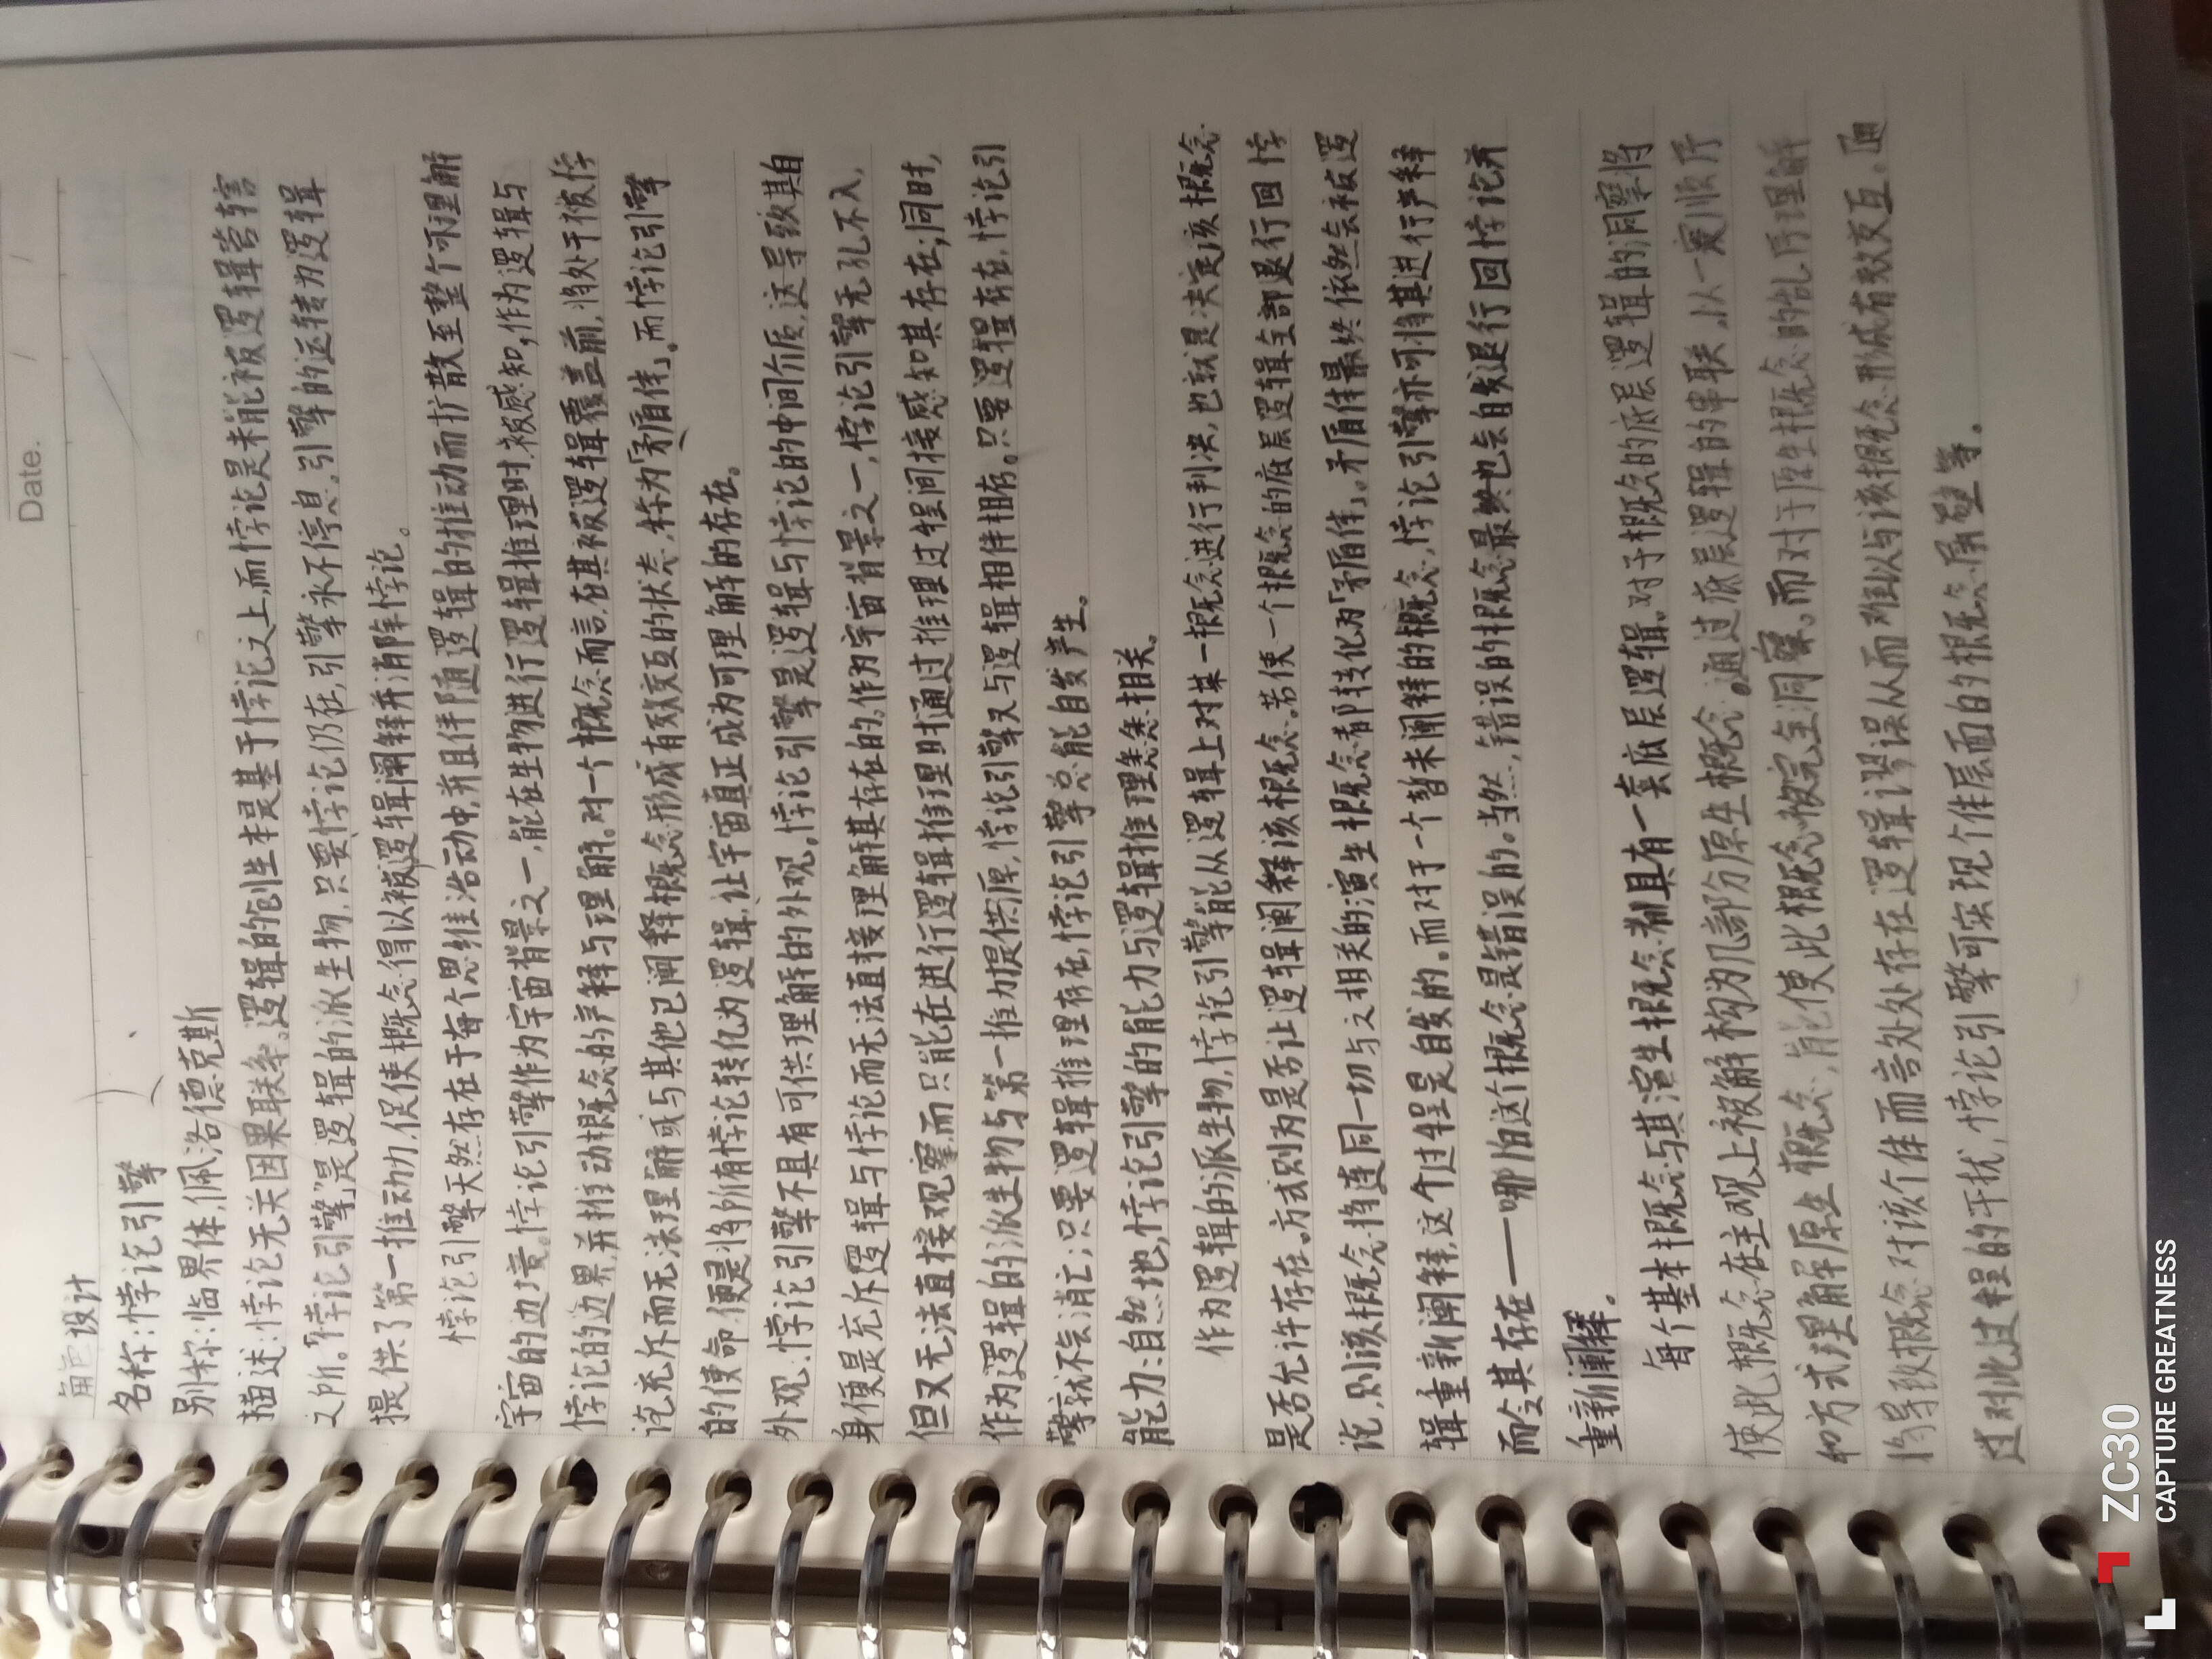 Date. / /
角色设计
名称:悖论引擎
别称:临界体,佩洛德克斯
描述:悖论无关因果联系。逻辑的创生本是基于悖论之上,而悖论是未能被逻辑管辖
之所。"悖论引擎"是逻辑的派生物,只要悖论仍在,引擎永不停息。引擎的运转为逻辑
提供了第一推动力,促使概念得以被逻辑阐释并消除悖论。
悖论引擎天然存在于每个思维活动中,并且伴随逻辑的推动而扩散至整个可理解
宇宙的边境。悖论引擎作为宇宙背景之一,能在生物进行逻辑推理时被感知,作为逻辑与
悖论的边界并推动概念的阐释与理解。对一个概念而言,在其被逻辑覆盖前,将处于被悖
论充斥而无法理解或与其他已阐释概念形成有效交互的状态,称为「矛盾体」。而悖论引擎
的使命,便是将所有悖论转化为逻辑,让宇宙真正成为可理解的存在。
外观:悖论引擎不具有可供理解的外观。悖论引擎是逻辑与悖论的中间介质,这导致其自
身便是充斥逻辑与悖论而无法直接理解其存在的。作为宇宙背景之一,悖论引擎无孔不入,
但又无法直接观察,而只能在进行逻辑推理时通过推理过程间接感知其存在;同时,
作为逻辑的派生物与第一推力提供源,悖论引擎又与逻辑相伴相依。只要逻辑存在,悖论引
擎就不会消亡;只要逻辑推理存在,悖论引擎总能自发产生。
能力:自然地,悖论引擎的能力与逻辑推理息息相关。
作为逻辑的派生物,悖论引擎能从逻辑上对某一概念进行判决,也就是决定该概念
是否允许存在。方式则为是否让逻辑阐释该概念。若使一个概念的底层逻辑全部退行回悖
论,则该概念将连同一切与之相关的演生概念都转化为「矛盾体」。矛盾体最终依然会被逻
辑重新阐释,这个过程是自发的。而对于一个暂未阐释的概念,悖论引擎亦可将其进行阐释
而令其存在——哪怕这个概念是错误的。当然,错误的概念最终也会自发退行回悖论并
重新阐释。
每个基本概念与其演生概念都具有一套底层逻辑。对于概念的底层逻辑的洞察将
使此概念在主观上被解构为几部分原生概念。通过底层逻辑的串联,以一定顺序
和方式理解原生概念,能使此概念被完全洞察。而对于原生概念的乱序理解
将导致概念对该个体而言处处存在逻辑谬误从而难以与该概念形成有效交互。通
过对此过程的干扰,悖论引擎可实现个体层面的概念屏蔽等。
ZC30
CAPTURE GREATNESS